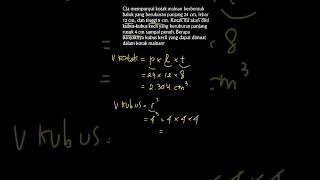 Cia mempunyai kotak mainan berbentuk
balok yang berukuran panjang 24 cm, lebar
12 cm, dan tinggi 8 cm. Kotak itu akan diisi
kubus-kubus kecil yang berukuran panjang
rusuk 4 cm sampai penuh. Berapa
banyaknya kubus kecil yang dapat dimuat
dalam kotak mainan?
V kotak = p x l x t
= 24 x 12 x 8
= 2.304 cm³
V kubus = r³
= 4³ = 4 x 4 x 4
=
V kubus =